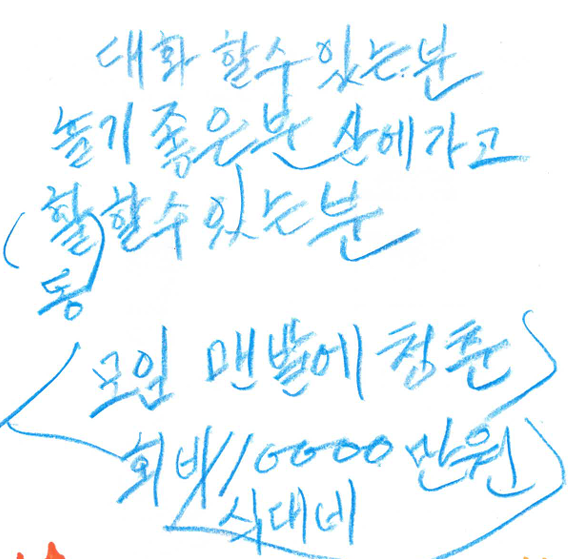 대화 할수있는분
놀기 좋은분 산에가고
(활)할수있는분
동
모임 맨발에 청춘
회비 10000 만원
식대비